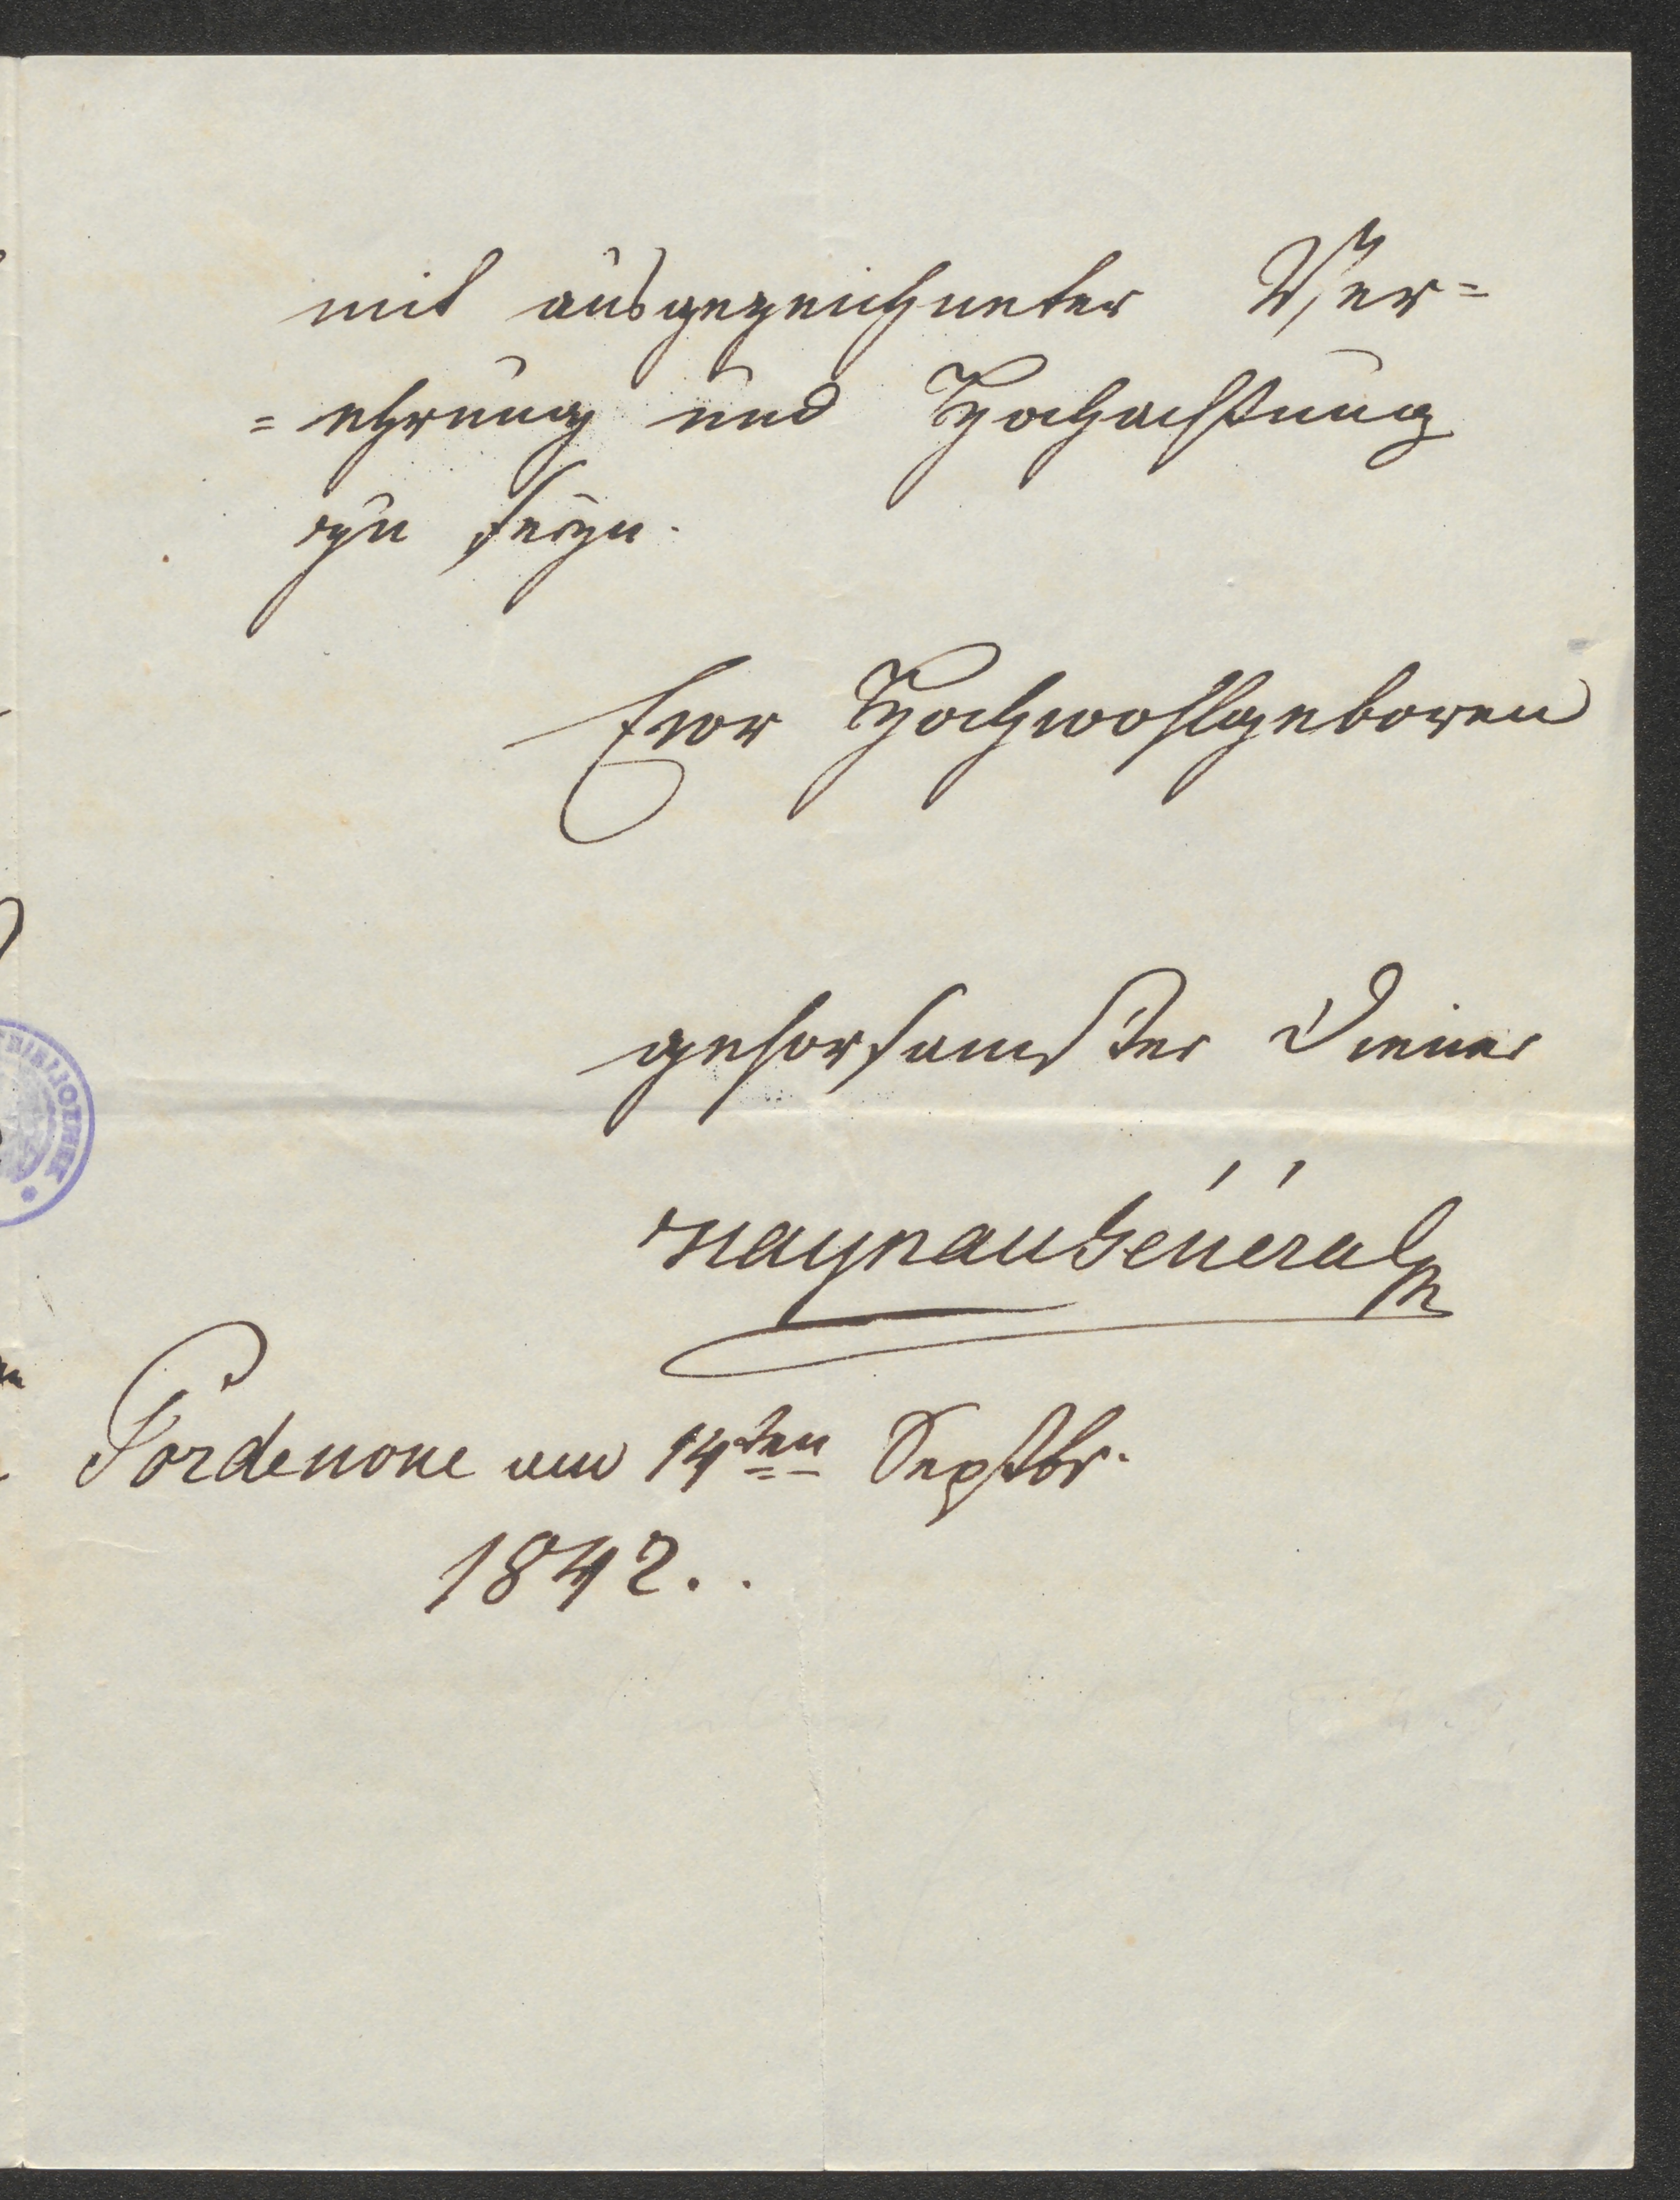 mit ausgezeichneter Ver=
=ehrung und Hochachtung
zu seyn.
Euer Hochwohlgeboren
gehorsamster Diener
Haynau General
Pordenone am 14ten Septbr.
1842..